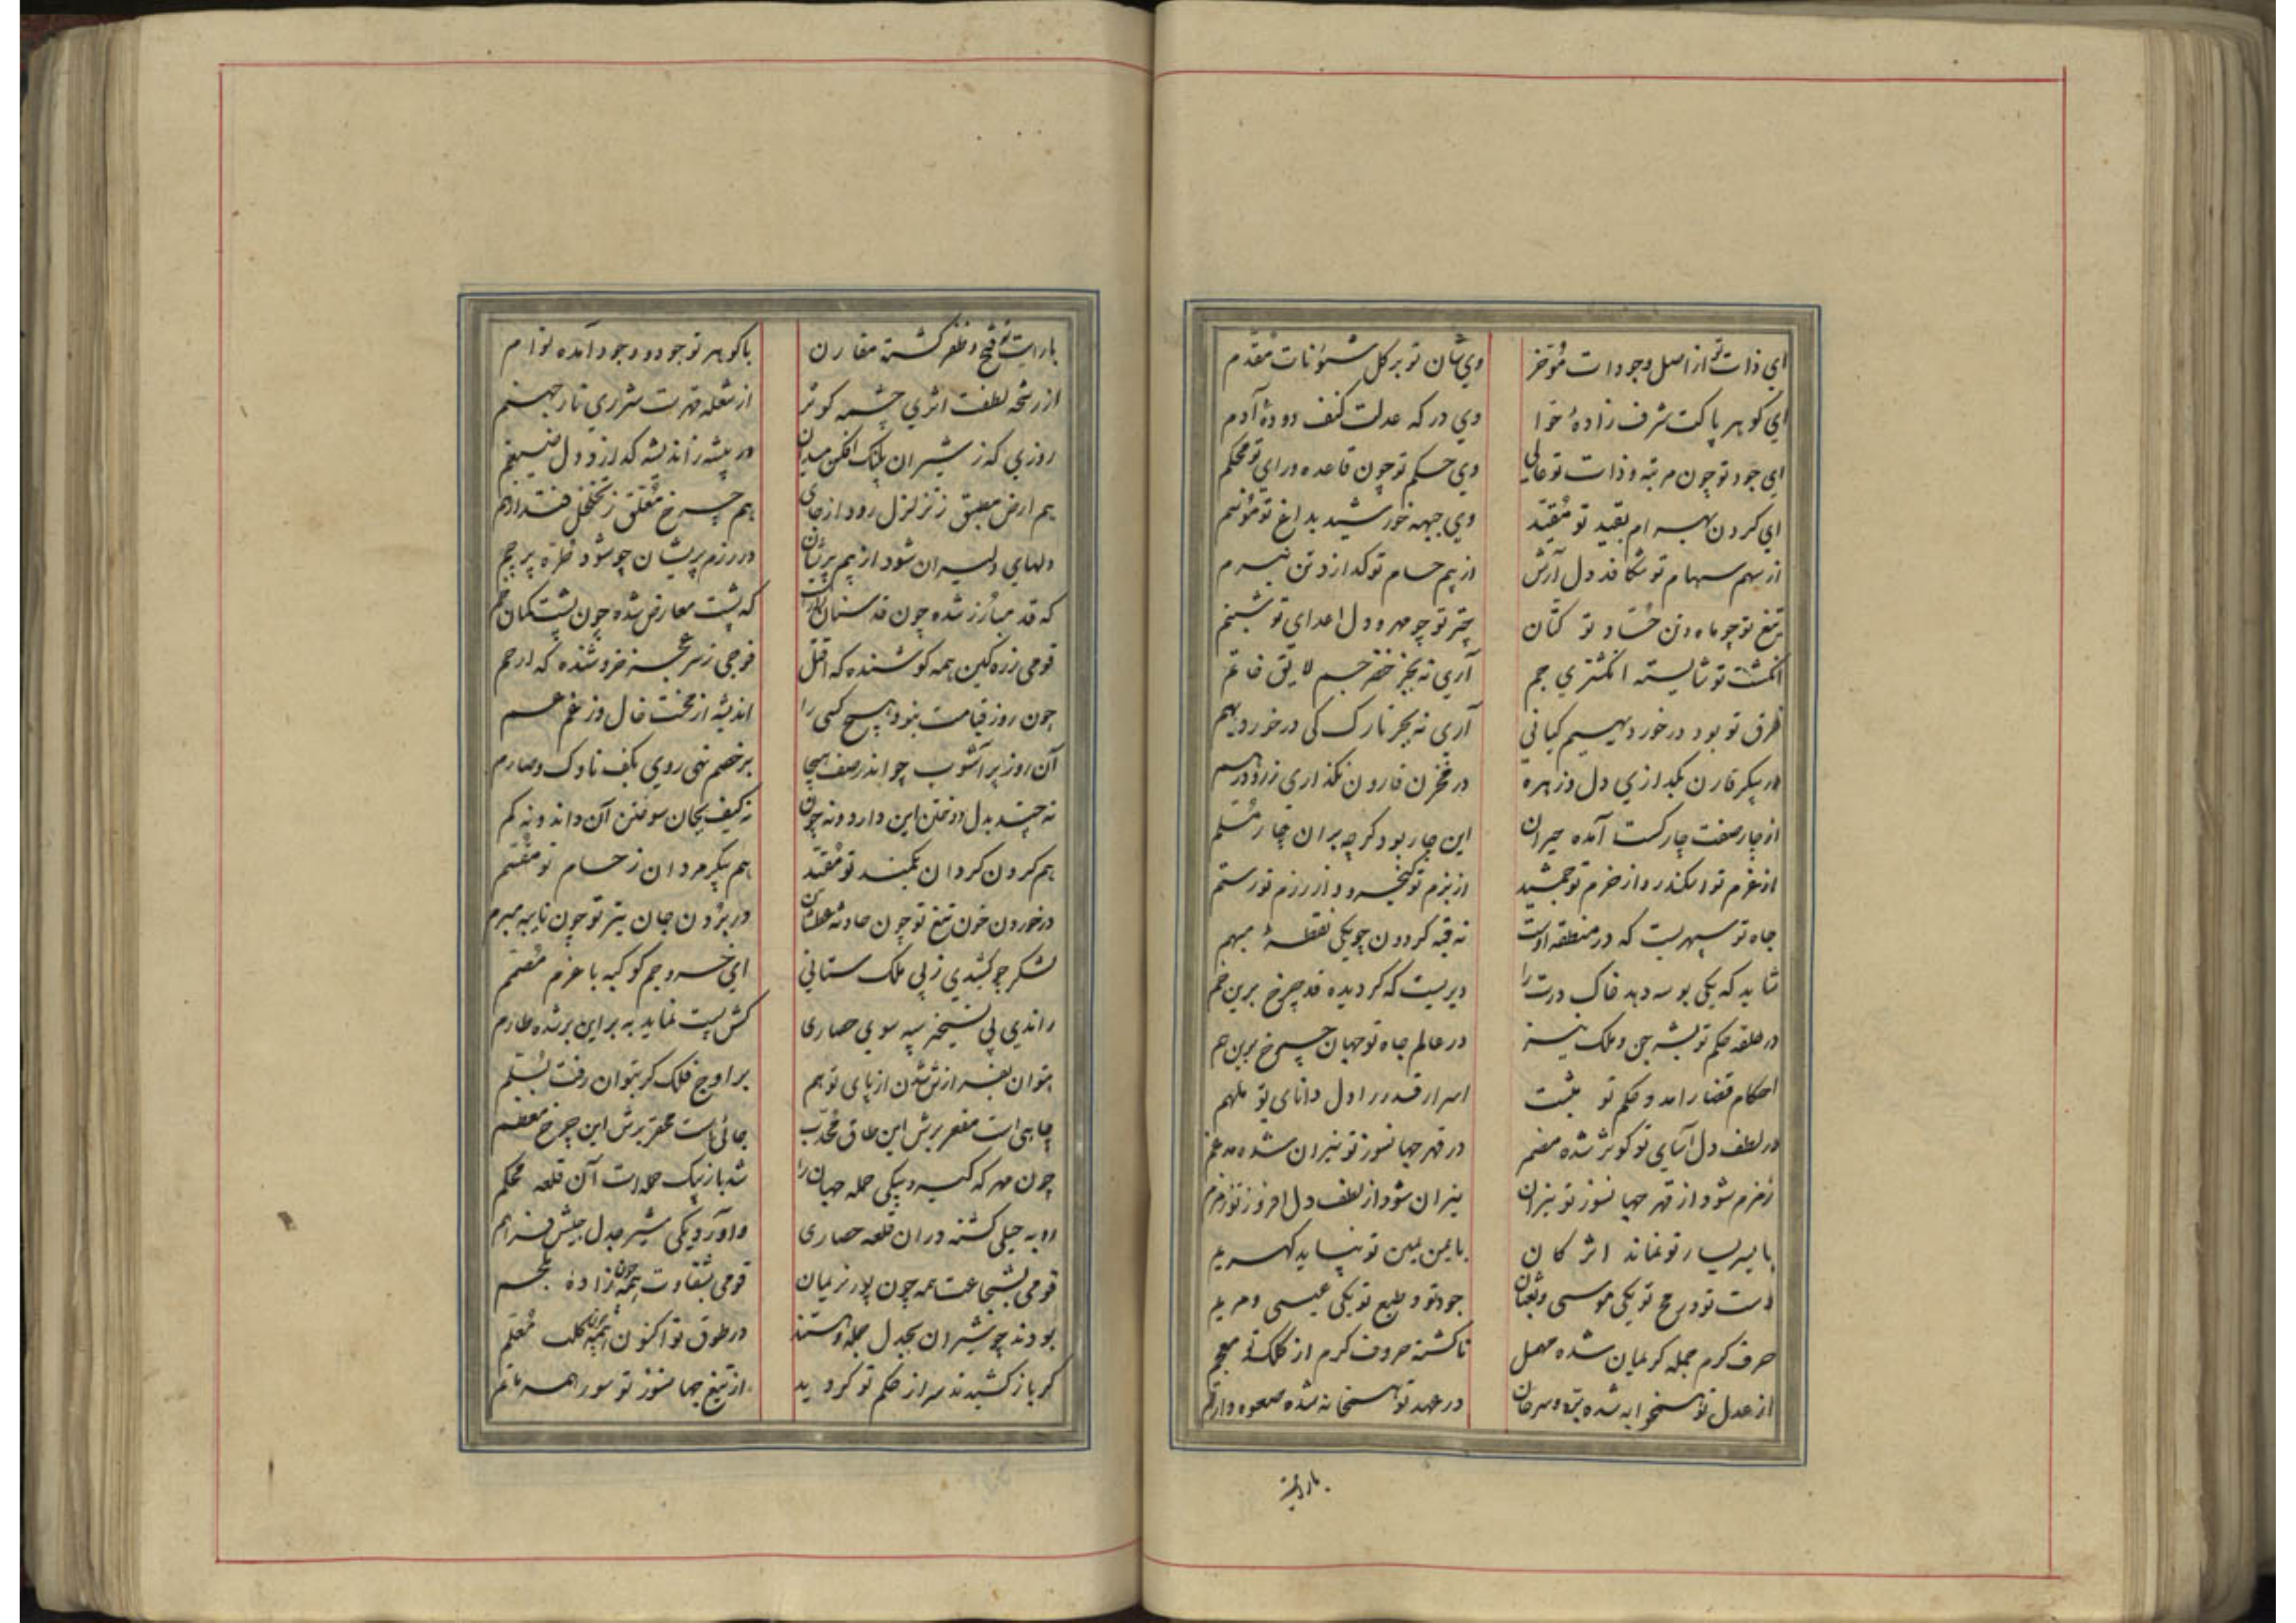 اي ذات تو از اصل وجودات مؤخر وي شان تو بر کل شئونات مقدم
اي کوهر پاکت شرف زادهٔ حوا وي درکه عدلت کنف دودهٔ آدم
اي جود تو چون مرتبه و ذات تو عالي وي حکم تو چون قاعده و راي تو محکم
اي کردن بهرام بقيد تو مقيد وي جبهه خورشيد بداغ تو موسم
از سهم سهام تو شکافد دل آرش از بيم حسام تو کدازد تن نيرم
تيغ تو چو ماه و تن حساد تو کتان چتر تو چو مهر و دل اعداي تو شبنم
انکشت تو شايسته انکشتري جم آري نه بجز خنصر جم لايق خاتم
فرق تو بود درخور ديهيم کياني آري نه بجز تارک کي درخور ديهم
در پيکر قارن بکدازي دل و زهره در مخزن قارون نکذاري زر و درهم
از چار صفت چار کست آمده حيران اين چار بود کرچه بران چار مسلم
از عزم تو اسکندر و از حزم تو جمشيد از بزم تو کيخسرو و از رزم تو رستم
جاه تو سپهريست که در منطقه اوست نه قبه کردون چو يکي نقطهٔ مبهم
شايد که يکي بوسه دهد خاک درت را ديريست که کرديده قد چرخ برين خم
در حلقه حکم تو بشر جن و ملک نيز در عالم جاه تو جهان چرخ برين هم
احکام قضا را مد و حکم تو مثبت اسرار قدر را دل داناي تو ملهم
در لطف دل آساي تو کوثر شده مضمر در قهر جهانسوز تو نيران شده مدغم
زمزم شود از قهر جهانسوز تو نيران نيران شود از لطف دل افروز تو زمزم
با يسر يسار تو نماند اثر کان با يمن يمين تو نپايد کهر يم
دست تو و رمح تو يکي موسي و ثعبان جود تو و طبع تو يکي عيسي و مريم
حرف کرم جمله کريمان شده مهمل تا کشته حروف کرم از کلک تو معجم
از عدل تو همخوابه شده بره و سرحان در عهد تو همخانه شده صعوه و ارقم
با رايت
با رايت تو فتح و ظفر کشته مقارن با کوهر تو جود و وجود آمده توام
از رشحه لطفت اثري چشمه کوثر از شعله قهرت شراري نار جهنم
روزي که ز شيران پلنک افکن ميدان در بيشه ز انديشه کدازد دل ضيغم
هم ارض مطبق ز تزلزل رود از جاي هم چرخ معلق ز تخلخل فتد از هم
دلهاي دليران شود از بيم پريشان در رزم پريشان چو شود طره پرچم
که قد مبارز شده چون قد سنان راست که پشت معارض شده چون پشت کمان خم
قومي ز ره کين همه کوشنده که اقتل فوجي ز سر عجز خروشنده که ارحم
چون روز قيامت بنود هيچ کسي را انديشه از بخت خال و ز غم عم
آن روز پر آشوب چو اندر صف هيجا بر خصم نهي روي بکف ناوک و صارم
نه چند بدل دوختن اين دارد و نه چون نه کيف بجان سوختن آن داند و نه کم
هم کردن کردان بکمند تو مقيد هم پيکر مردان ز حسام تو مقسم
در خوردن خون تيغ تو چون حادثه عطشان در بردن جان تير تو چون نايبه مبرم
لشکر چو کشيدي ز پي ملک ستاني اي خسرو جم کوکبه با عزم مصمم
راندي پي تسخير سپه سوي حصاري کش پست نمايد به بر اين بر شده طارم
بتوان بفرازش شدن از پاي توهم بر اوج فلک کر بتوان رفت بسلم
چاهي است مقعر برش اين طاق محدب جائي است محقر برش اين چرخ معظم
چون مهر که کيرد بيکي حمله جهان را شد باز بيک حمله ات آن قلعه محکم
روبه خيلي کشته دران قلعه حصاري واورد يکي شير جدل جيش فراهم
قومي بشجاعت همه چون پور نريمان قومي بشقاوت همه چون زادهٔ ملجم
بودند چو شيران بجدل جمله و هستند در طوق تو اکنون همه چون کلب معلم
کر باز کشيدند سر از حکم تو کرديد از تيغ جهانسوز تو سور همه ماتم